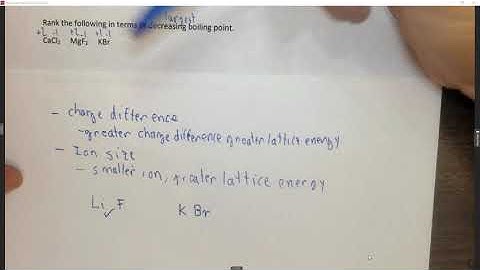 largest
Rank the following in terms of decreasing boiling point.
+2 -1 +2 -1 +1 -1
CaCl₂ MgF₂ KBr
- charge difference
- greater charge difference greater lattice energy
- Ion size
- smaller ion, greater lattice energy
Li F K Br